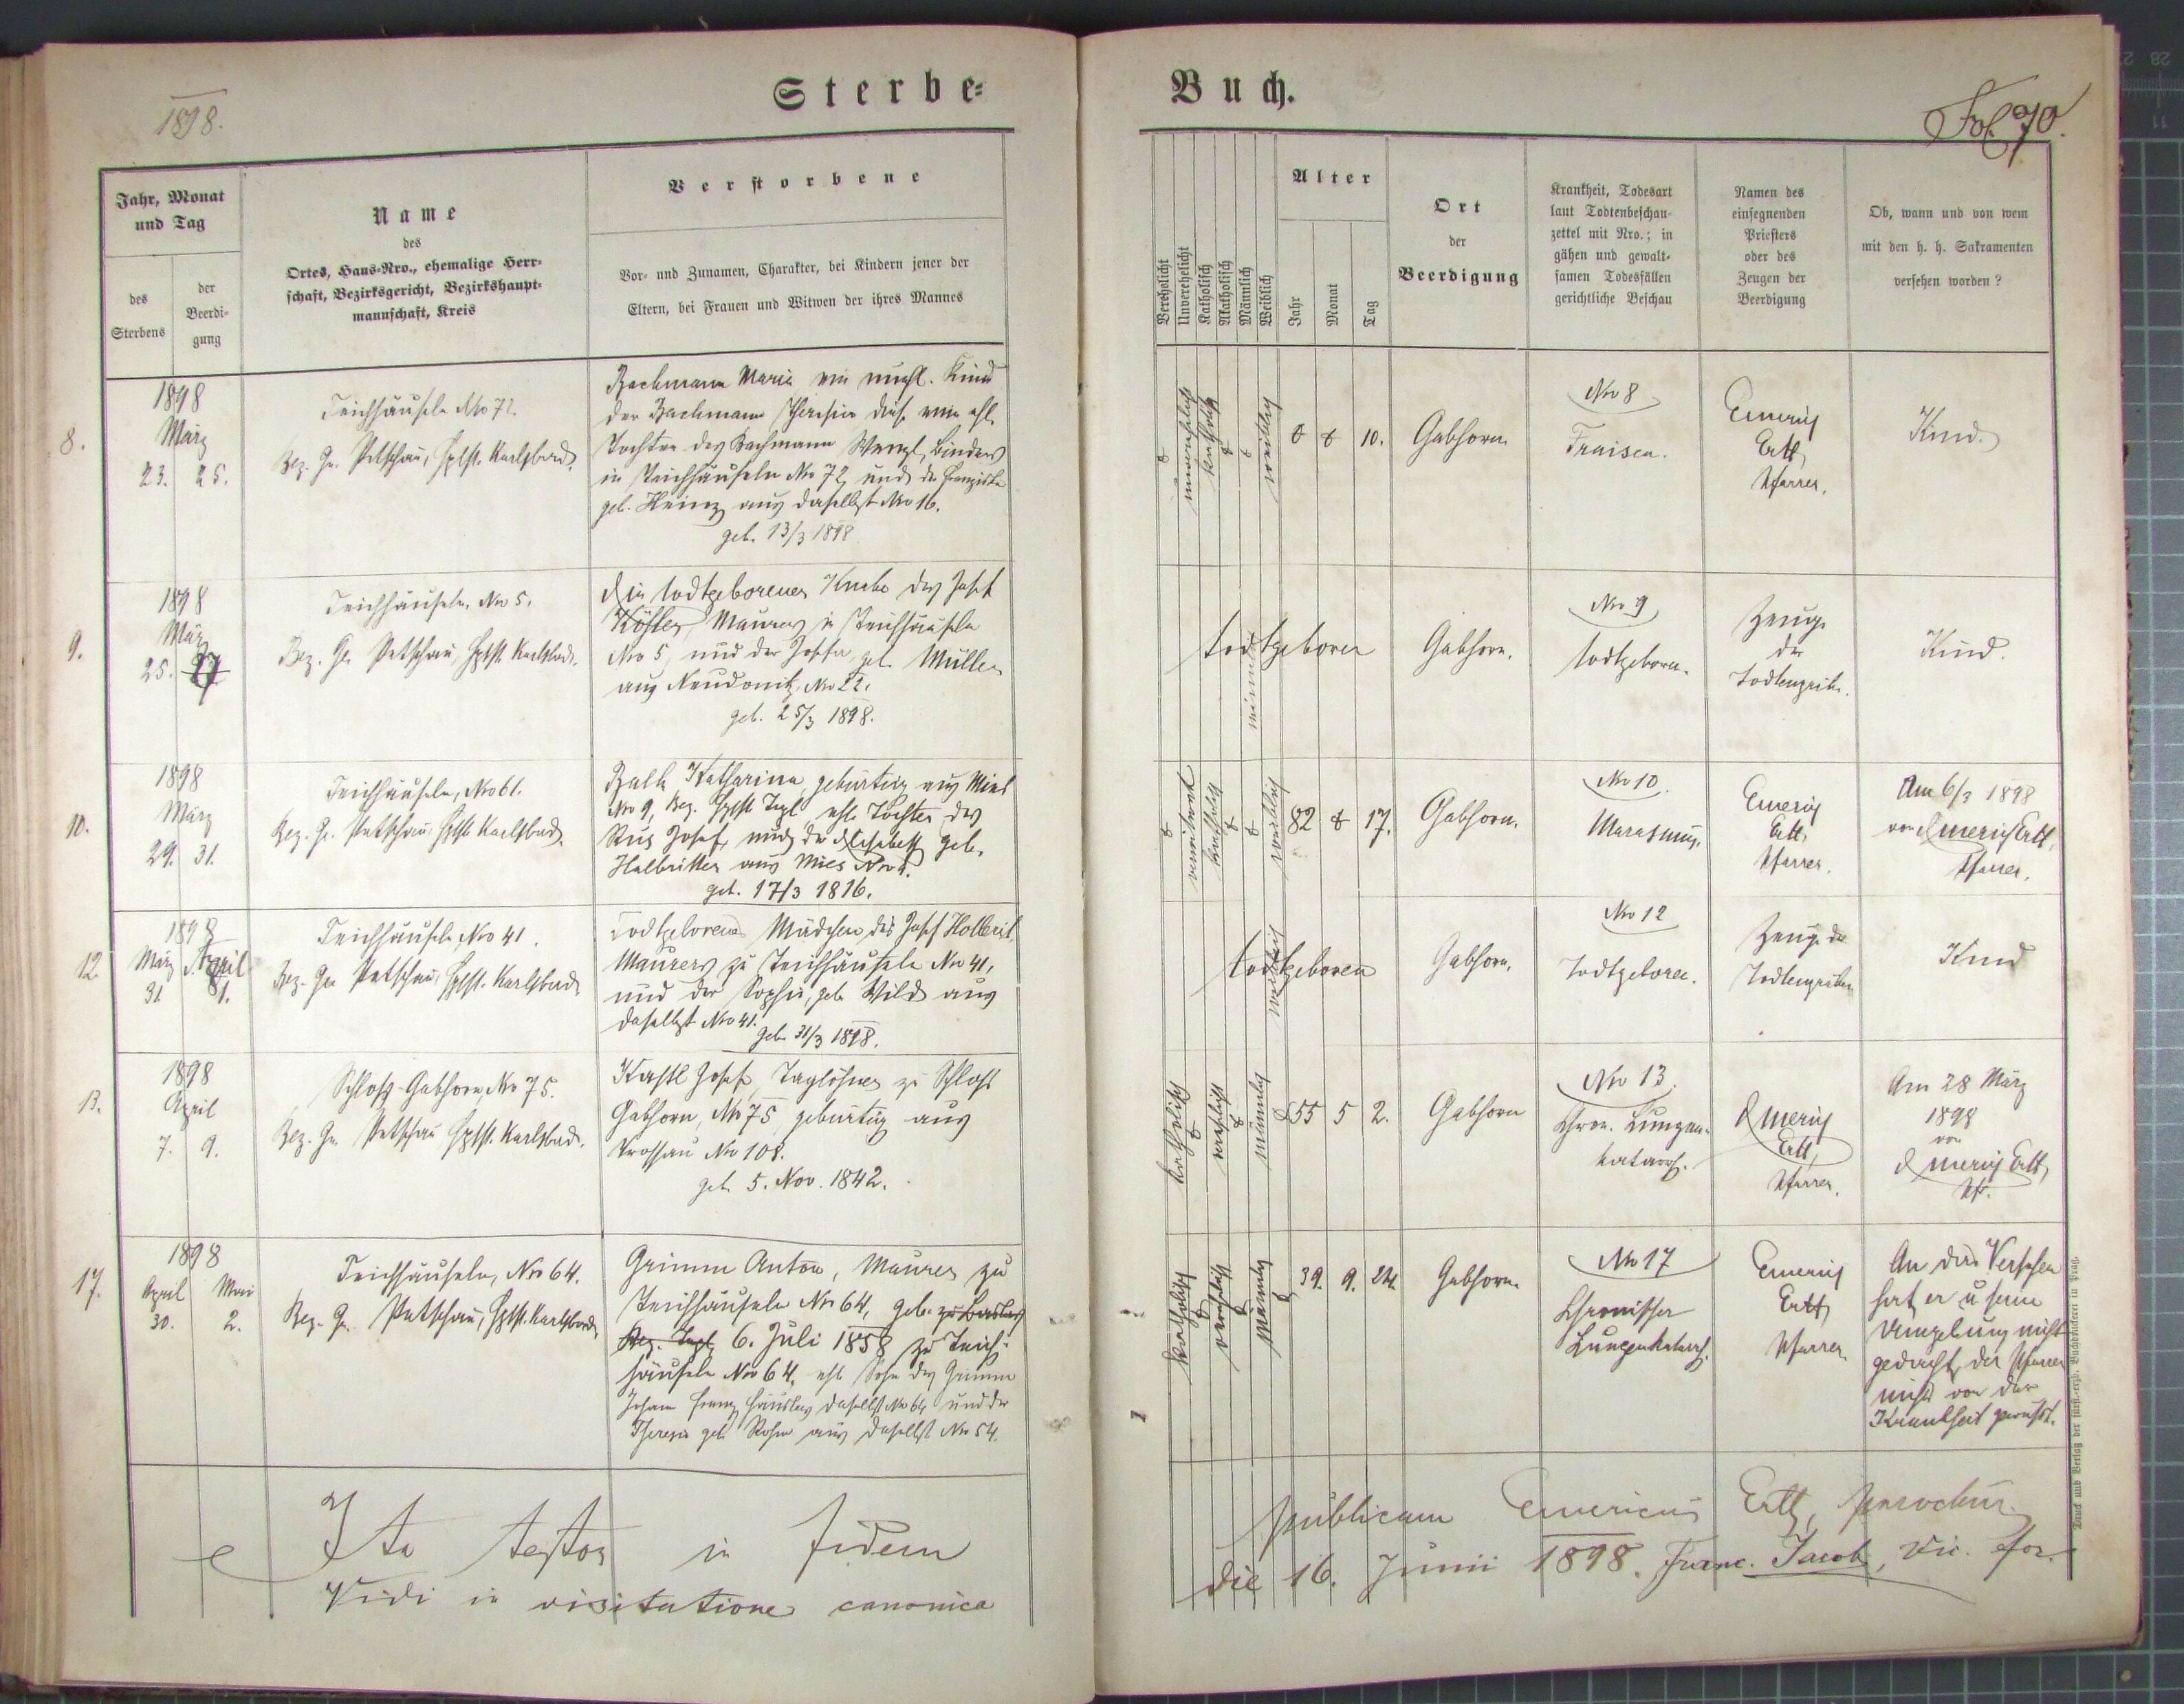 1898.
Sterbe=
Buch.
Fol. 70.
Jahr, Monat
und Tag
des
Sterbens
der
Beerdi-
gung
Name
des
Ortes, Haus-Nro., ehemalige Herr-
schaft, Bezirksgericht, Bezirkshaupt-
mannschaft, Kreis
Verstorbene
Vor- und Zunamen, Charakter, bei Kindern jener der
Eltern, bei Frauen und Witwen der ihres Mannes
Verehelicht
Unverehelicht
Katholisch
Akatholisch
Männlich
Weiblich
Alter
Jahr
Monat
Tag
Ort
der
Beerdigung
Krankheit, Todesart
laut Todtenbeschau-
zettel mit Nro.; in
gähen und gewalt-
samen Todesfällen
gerichtliche Beschau
Namen des
einsegnenden
Priesters
oder des
Zeugen der
Beerdigung
Ob, wann und von wem
mit den h. h. Sakramenten
versehen worden?
8.
1898
März
23. 25.
Teichhäuseln Nro 72.
Bez. Ger. Petschau, Hptst. Karlsbad.
Bachmann Maria ein unehl. Kind
der Bachmann Theresia diese eine ehl.
Tochter des Bachmann Wenzl, Binders
in Teichhäuseln Nro 72, und der Franziska
geb. Heinz aus daselbst Nro 16.
geb. 13/3 1898
katholisch
weiblich
10.
Gabhorn.
Nro 8
Fraisen.
Emerich
Ertl
Pfarrer.
Kind.
9.
1898
März
25. 27
Teichhäuseln, Nro 5.
Bez. Ger. Petschau, Hptst. Karlsbad.
Ein todtgeborener Knabe des Josef
Köstler, Maurers in Teichhäuseln
Nro 5, und der Josefa geb. Müller
aus Neudonitz, Nro 22.
geb. 25/3 1898.
todtgeboren
Gabhorn.
Nro 9
todtgeboren.
Zeuge
der
Todtengräber.
Kind.
10.
1898
März
29. 31.
Teichhäuseln, Nro 61.
Bez. Ger. Petschau, Hptst. Karlsbad.
Balk Katharina, gebürtig aus Mies
Nro 9, Bez. Hptst. Tepl, ehl. Tochter des
Josef, und der Elisabeth geb.
Halbritter aus Mies Nro
geb. 17/3 1816.
verwitwet
katholisch
weiblich
82 17.
Gabhorn.
Nro 10.
Marasmus.
Emerich
Ertl,
Pfarrer.
Am 6/3 1898
von Emerich Ertl,
Pfarrer.
12.
1898
März April
31. 1.
Teichhäuseln, Nro 41.
Bez. Ger. Petschau, Hptst. Karlsbad.
Todtgeborenes Mädchen des Josef Hollerit
Maurers zu Teichhäuseln Nro 41,
und der Sophie, geb. Wild aus
daselbst Nro 41.
geb. 31/3 1898.
todtgeboren
weiblich
Gabhorn.
Nro 12
Todtgeboren.
Zeuge der
Todtengräber
Kind
13.
1898
April
7. 9.
Schloß-Gabhorn, Nro 75.
Bez. Ger. Petschau, Hptst. Karlsbad.
Kastl Josef, Taglöhner zu Schloß
Gabhorn, Nro 75, gebürtig aus
Prossau Nro 108.
geb. 5. Nov. 1842.
katholisch
männlich
55 5 2.
Gabhorn
Nro 13.
Chron. Lungen-
katarrh.
Emerich
Ertl,
Pfarrer.
Am 28 März
1898
von
Emerich Ertl,
Pfr.
17.
1898
April Mai
30. 2.
Teichhäuseln, Nro 64.
Bez. Ger. Petschau, Hptst. Karlsbad.
Grimm Anton, Maurer zu
Teichhäuseln Nro 64, geb. zu
Bez. Tepl, 6. Juli 1858 zu Teich-
häuseln Nro 64, ehl. Sohn des Grimm
Johann Franz Häuslers daselbst Nro 64 und der
Theresia geb. aus daselbst Nro 54.
katholisch
verehelicht
männlich
39. 9. 24.
Gabhorn.
Nro 17
Chronischer
Lungenkatarrh.
Emerich
Ertl
Pfarrer
An das Versehen
hat er u seine
Umgebung nicht
gedacht, der Pfarrer
nichts von der
Krankheit gewußt.
Ita testor in fidem publicam Emericus Ertl, parochus.
Vidi in visitatione canonica die 16. Junii 1898. Franc. Jacob, vic. for.
Druck und Verlag der fürst.-erzb. Buchdruckerei in Prag.